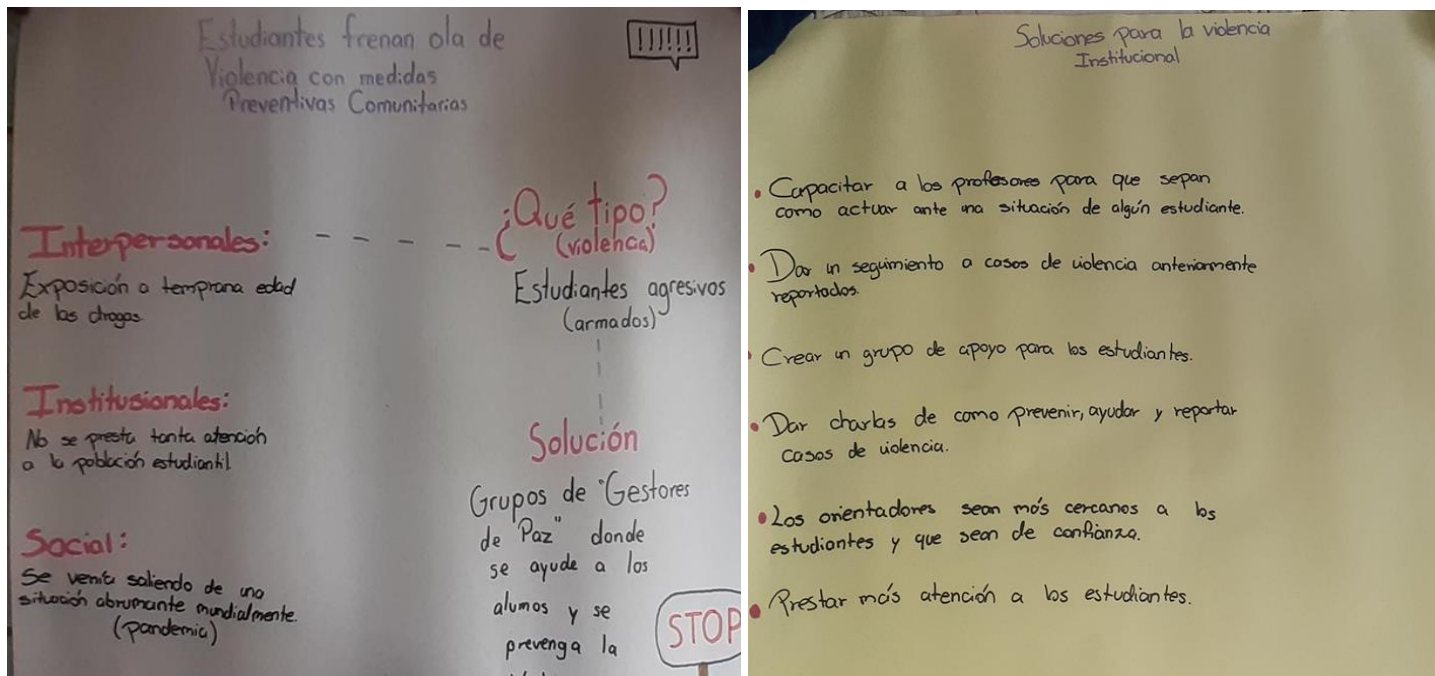 Estudiantes frenan ola de
Violencia con medidas
Preventivas Comunitarias
!!!!!!
Interpersonales:
Exposición a temprana edad
de las drogas
Institusionales:
No se presta tanta atención
a la población estudiantil
Social:
Se venía saliendo de una
situación abrumante mundialmente.
(pandemia)
¿Qué tipo?
(violencia)
Estudiantes agresivos
(armados)
Solución
Grupos de "Gestores
de Paz" donde
se ayude a los
alumos y se
prevenga la
STOP
Soluciones para la violencia
Institucional
• Capacitar a los profesores para que sepan
como actuar ante una situación de algún estudiante.
• Dar un seguimiento a casos de violencia anteriormente
reportados.
• Crear un grupo de apoyo para los estudiantes.
• Dar charlas de como prevenir, ayudar y reportar
casos de violencia.
• Los orientadores sean más cercanos a los
estudiantes y que sean de confianza.
• Prestar más atención a los estudiantes.